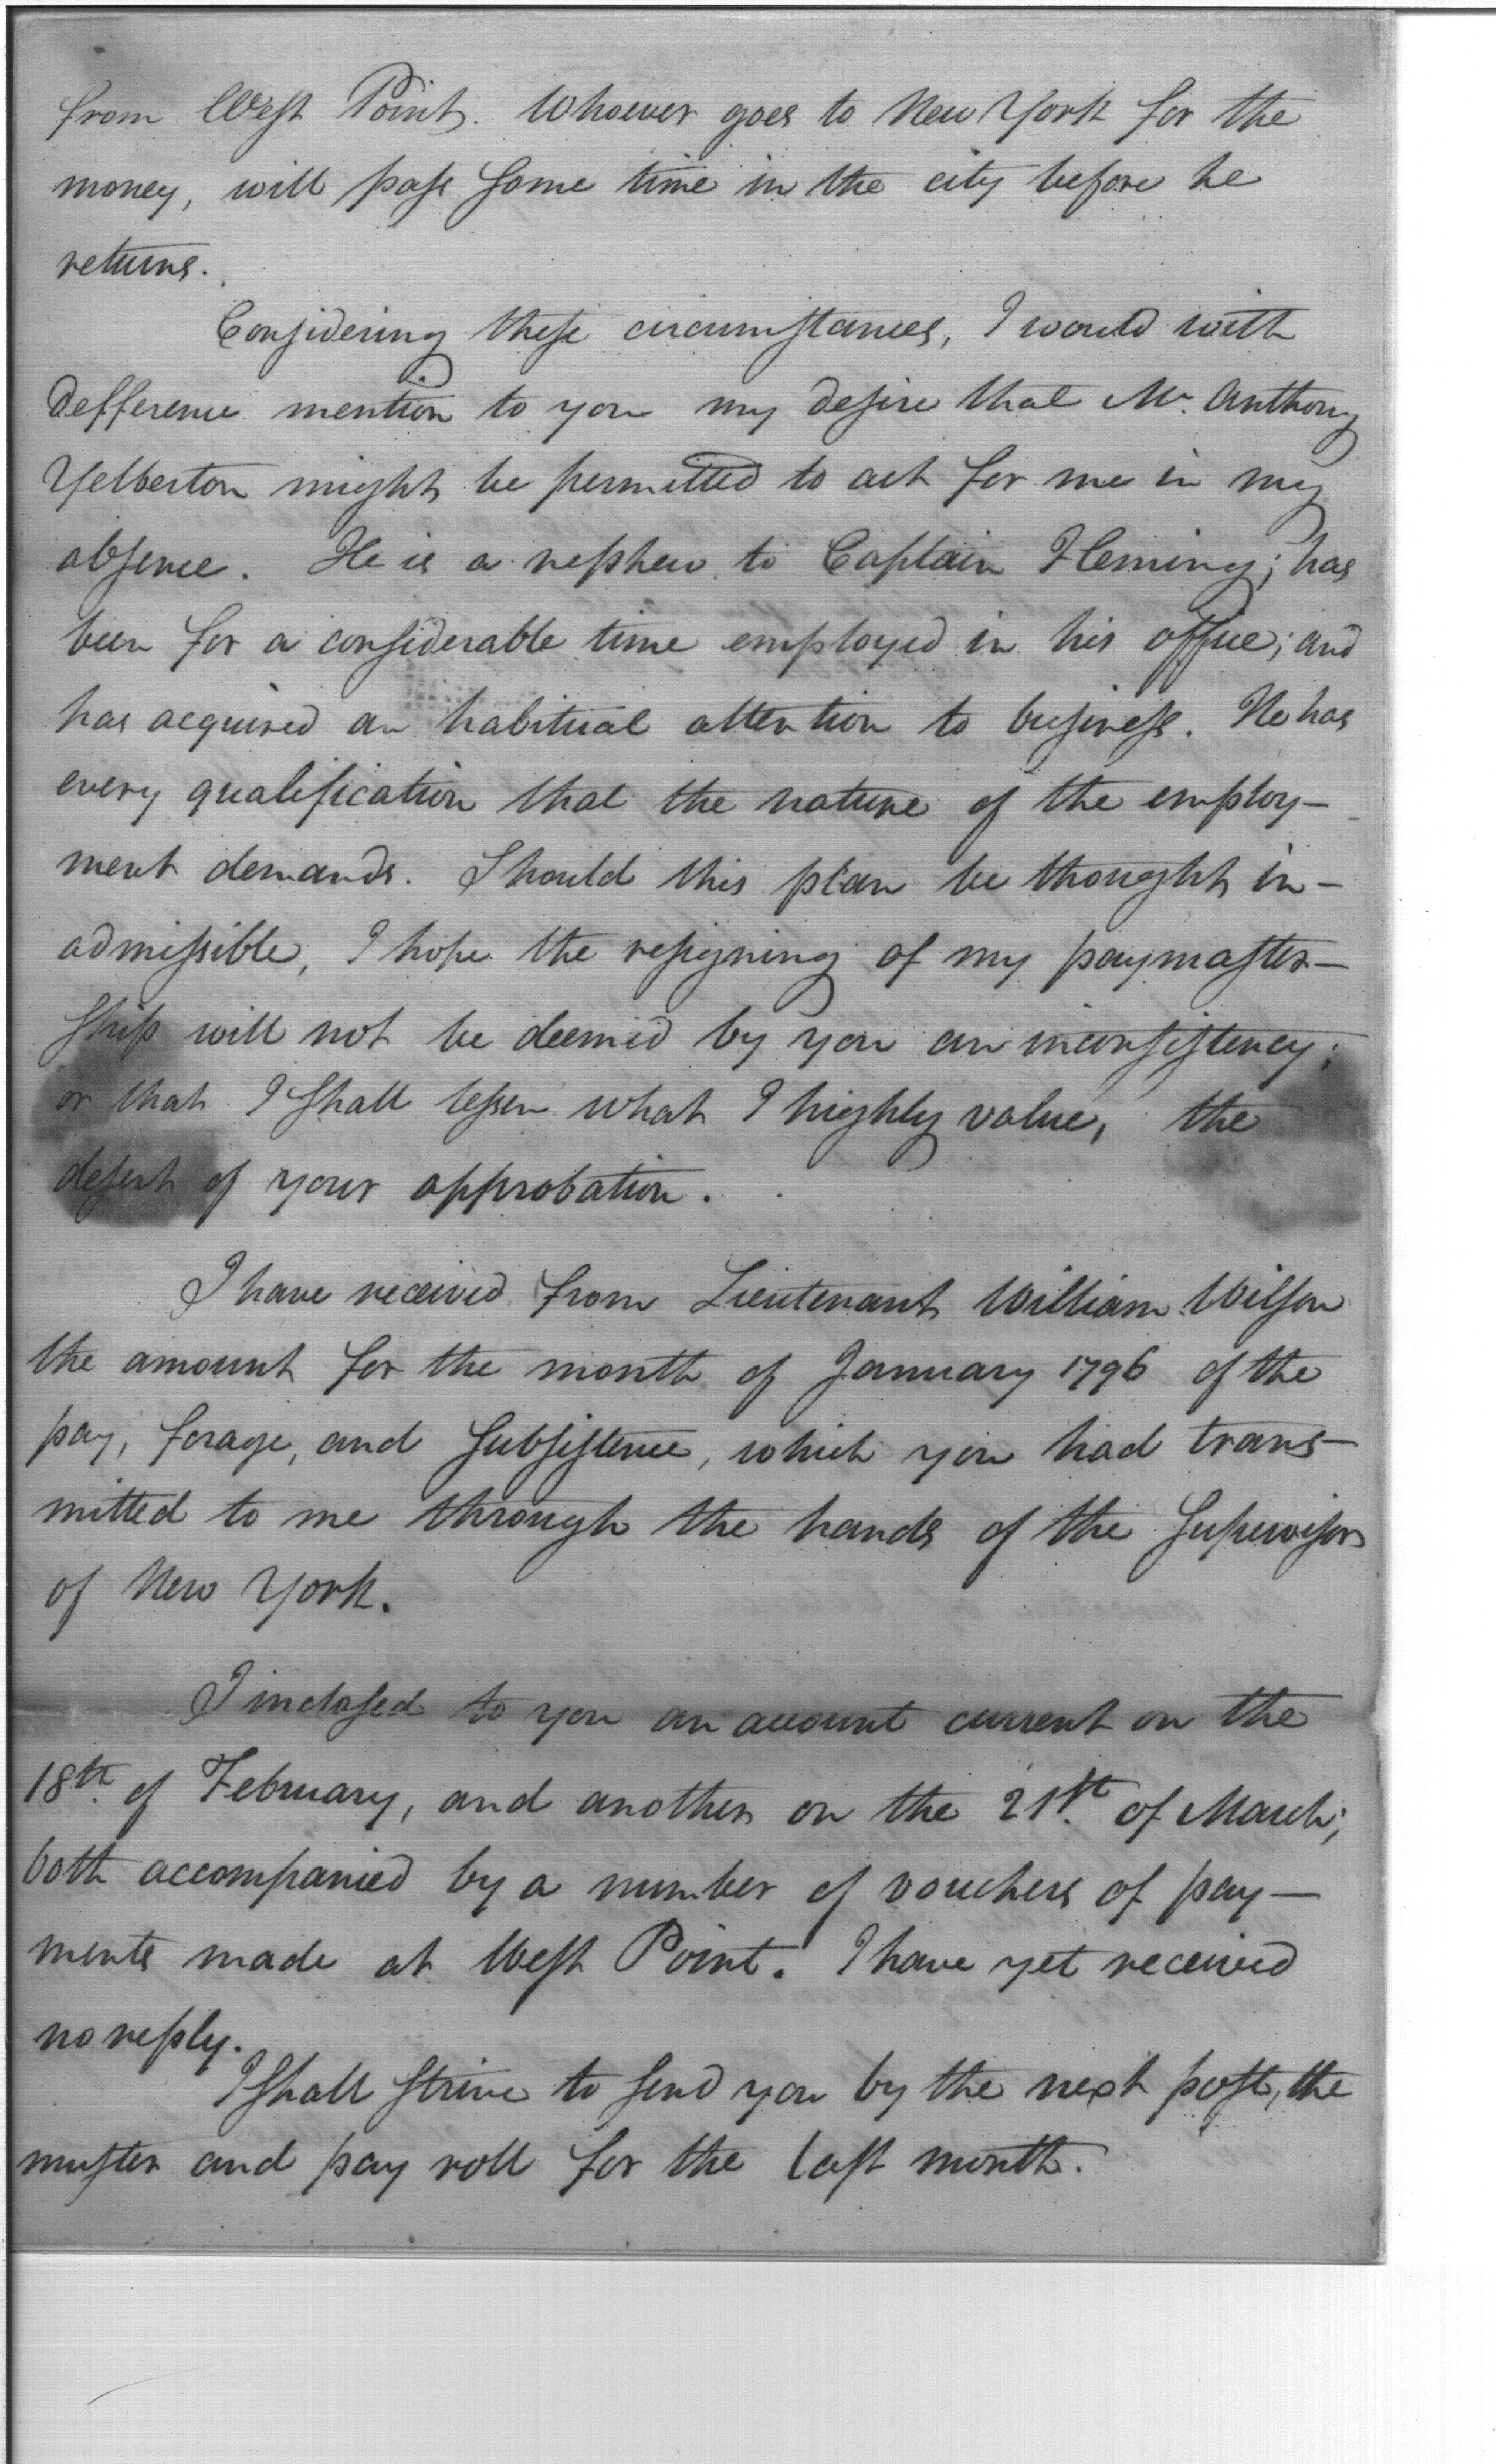 from West Point. Whoever goes to New York for the
money, will pass some time in the city before he
returns.
Considering these circumstances, I would with
defference mention to you my desire that Mr. Anthony
Yelberton might be permitted to act for me in my
absence. He is a nephew to Captain Fleming; has
been for a considerable time employed in his office; and
has acquired an habitual attention to business. He has
every qualification that the nature of the employ-
ment demands. Should this plan be thought in-
admissible, I hope the resigning of my paymaster-
ship will not be deemed by you an inconsistency;
or that I shall lessen what I highly value, the
desert of your approbation.
I have received from Lieutenant William Wilson
the amount for the month of January 1796 of the
pay, forage, and subsistence, which you had trans-
mitted to me through the hands of the Supervisor
of New York.
I inclosed to you an account current on the
18th. of February, and another on the 21st. of March;
both accompanied by a number of vouchers of pay-
ments made at West Point. I have yet received
no reply.
I shall strive to send you by the next post, the
muster and pay roll for the last month.